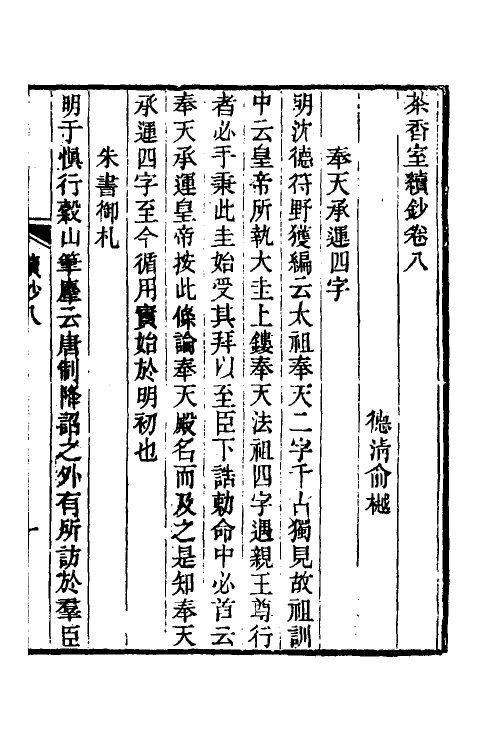 茶香室續鈔卷八
德清俞樾
奉天承運四字
明沈德符野獲編云太祖奉天二字千古獨見故祖訓
中云皇帝所執大圭上鏤奉天法祖四字遇親王尊行
者必手秉此圭始受其拜以至臣下誥勅命中必首云
奉天承運皇帝按此條論奉天殿名而及之是知奉天
承運四字至今循用實始於明初也
朱書御札
明于慎行榖山筆麈云唐制降詔之外有所訪於羣臣
續鈔八
一